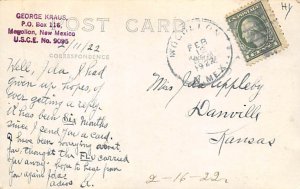 POST CARD
GEORGE KRAUS,
P.O. Box 116,
Mogollon, New Mexico
U.S.C.E. No. 9095
2/11/22
CORRESPONDENCE
MOGOLLON
FEB
1922
N. MEX.
Well, Ida, I had
given up hopes, of
ever getting a reply.
It has been six months
since I send you a card.
I have been worrying
you, thought the FLU carried
you away. hope to hear from
you again
adios
Mrs Ida Appleby
Danville
Kansas
2-16-22.